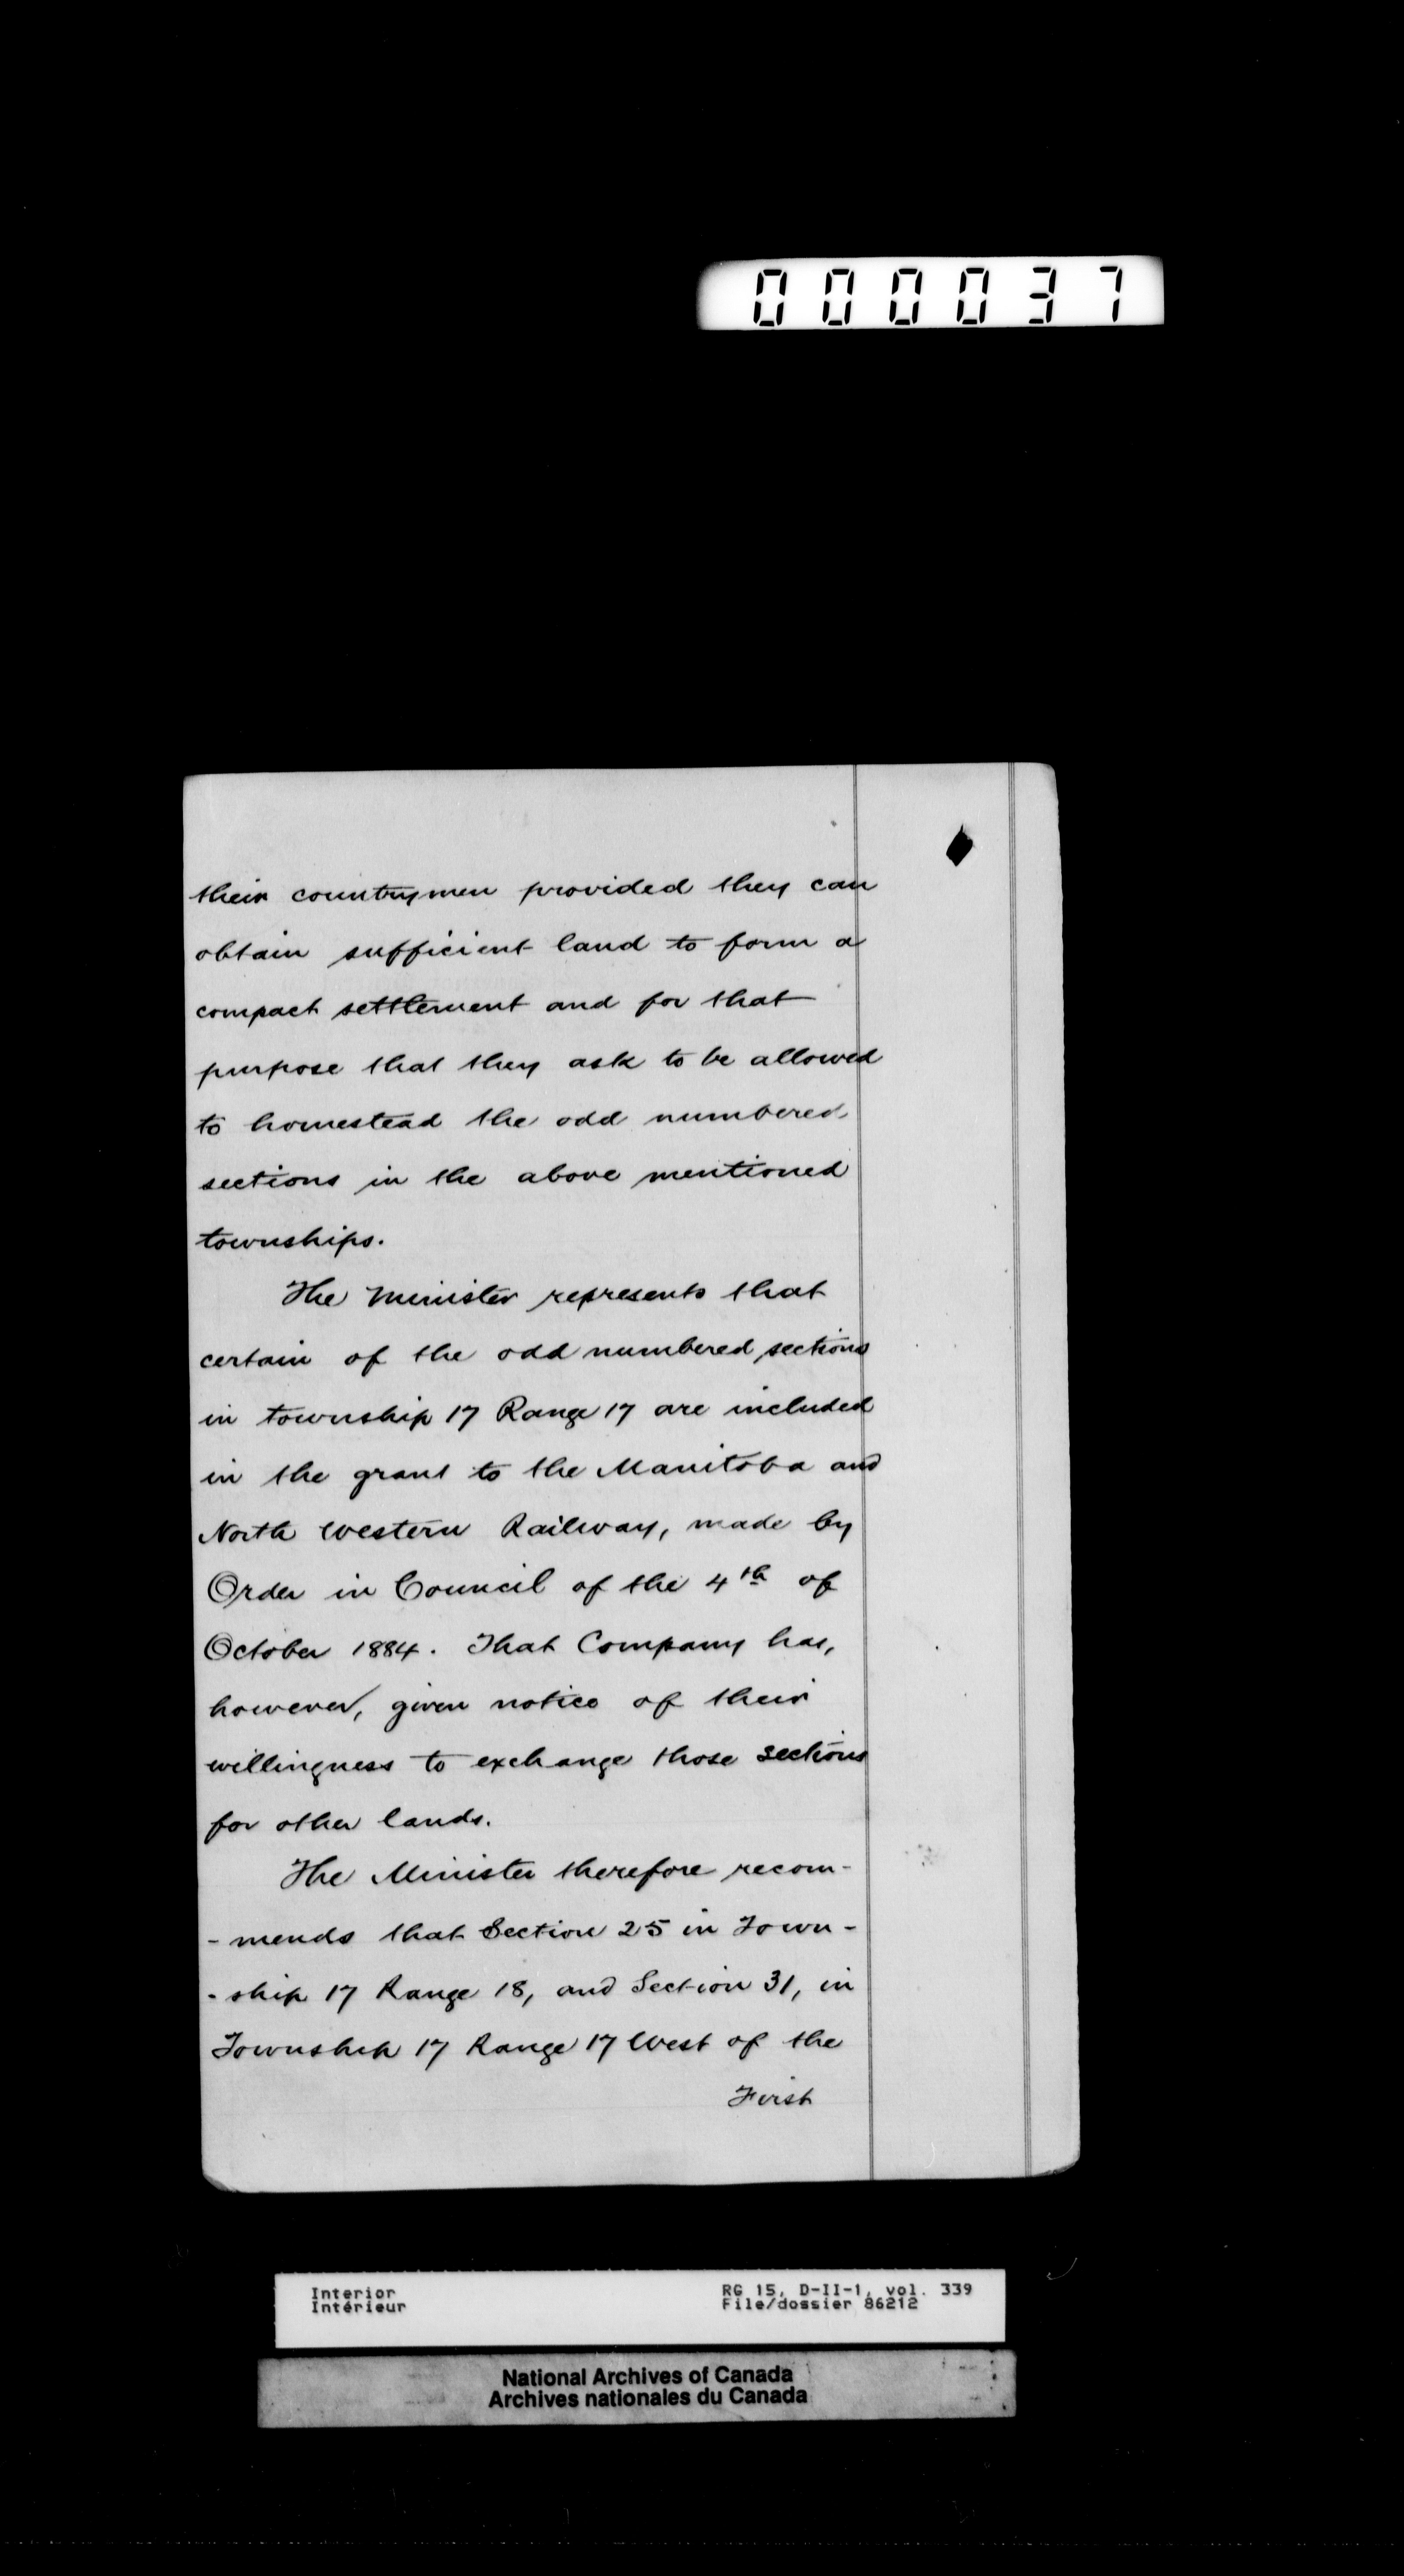 000037
their countrymen provided they can
obtain sufficient land to form a
compact settlement and for that
purpose that they ask to be allowed
to homestead the odd numbered
sections in the above mentioned
townships.
The Minister represents that
certain of the odd numbered sections
in township 17 Range 17 are included
in the grant to the Manitoba and
North Western Railway, made by
Order in Council of the 4th of
October 1884. That Company has,
however, given notice of their
willingness to exchange those sections
for other lands.
The Minister therefore recom-
- mends that Section 25 in Town-
- ship 17 Range 18, and Section 31, in
Township 17 Range 17 West of the
First
Interior RG 15, D-II-1, vol. 339
Intérieur File/dossier 86212
National Archives of Canada
Archives nationales du Canada